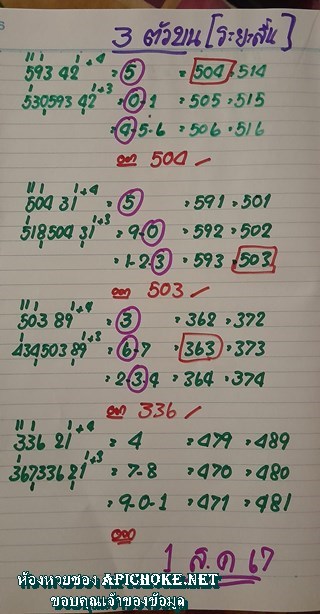 3 ตัวบน [ระยะสั้น]
593 42 +4 = 5 = 504 = 514
530593 42 +3 = 0-1 = 505 = 515
= 9-5-6 = 506 = 516
ออก 504 ✓
504 31 +4 = 5 = 591 = 501
518504 31 +3 = 9-0 = 592 = 502
= 1-2-3 = 593 = 503
ออก 503 ✓
503 89 +4 = 3 = 362 = 372
434503 89 +3 = 6-7 = 363 = 373
= 2-3-4 = 364 = 374
ออก 336 ✓
336 21 +4 = 4 = 479 = 489
367336 21 +3 = 7-8 = 470 = 480
= 9-0-1 = 471 = 481
ออก
1 ส.ค 67
ห้องหวยซอง APICHOKE.NET
ขอบคุณเจ้าของข้อมูล